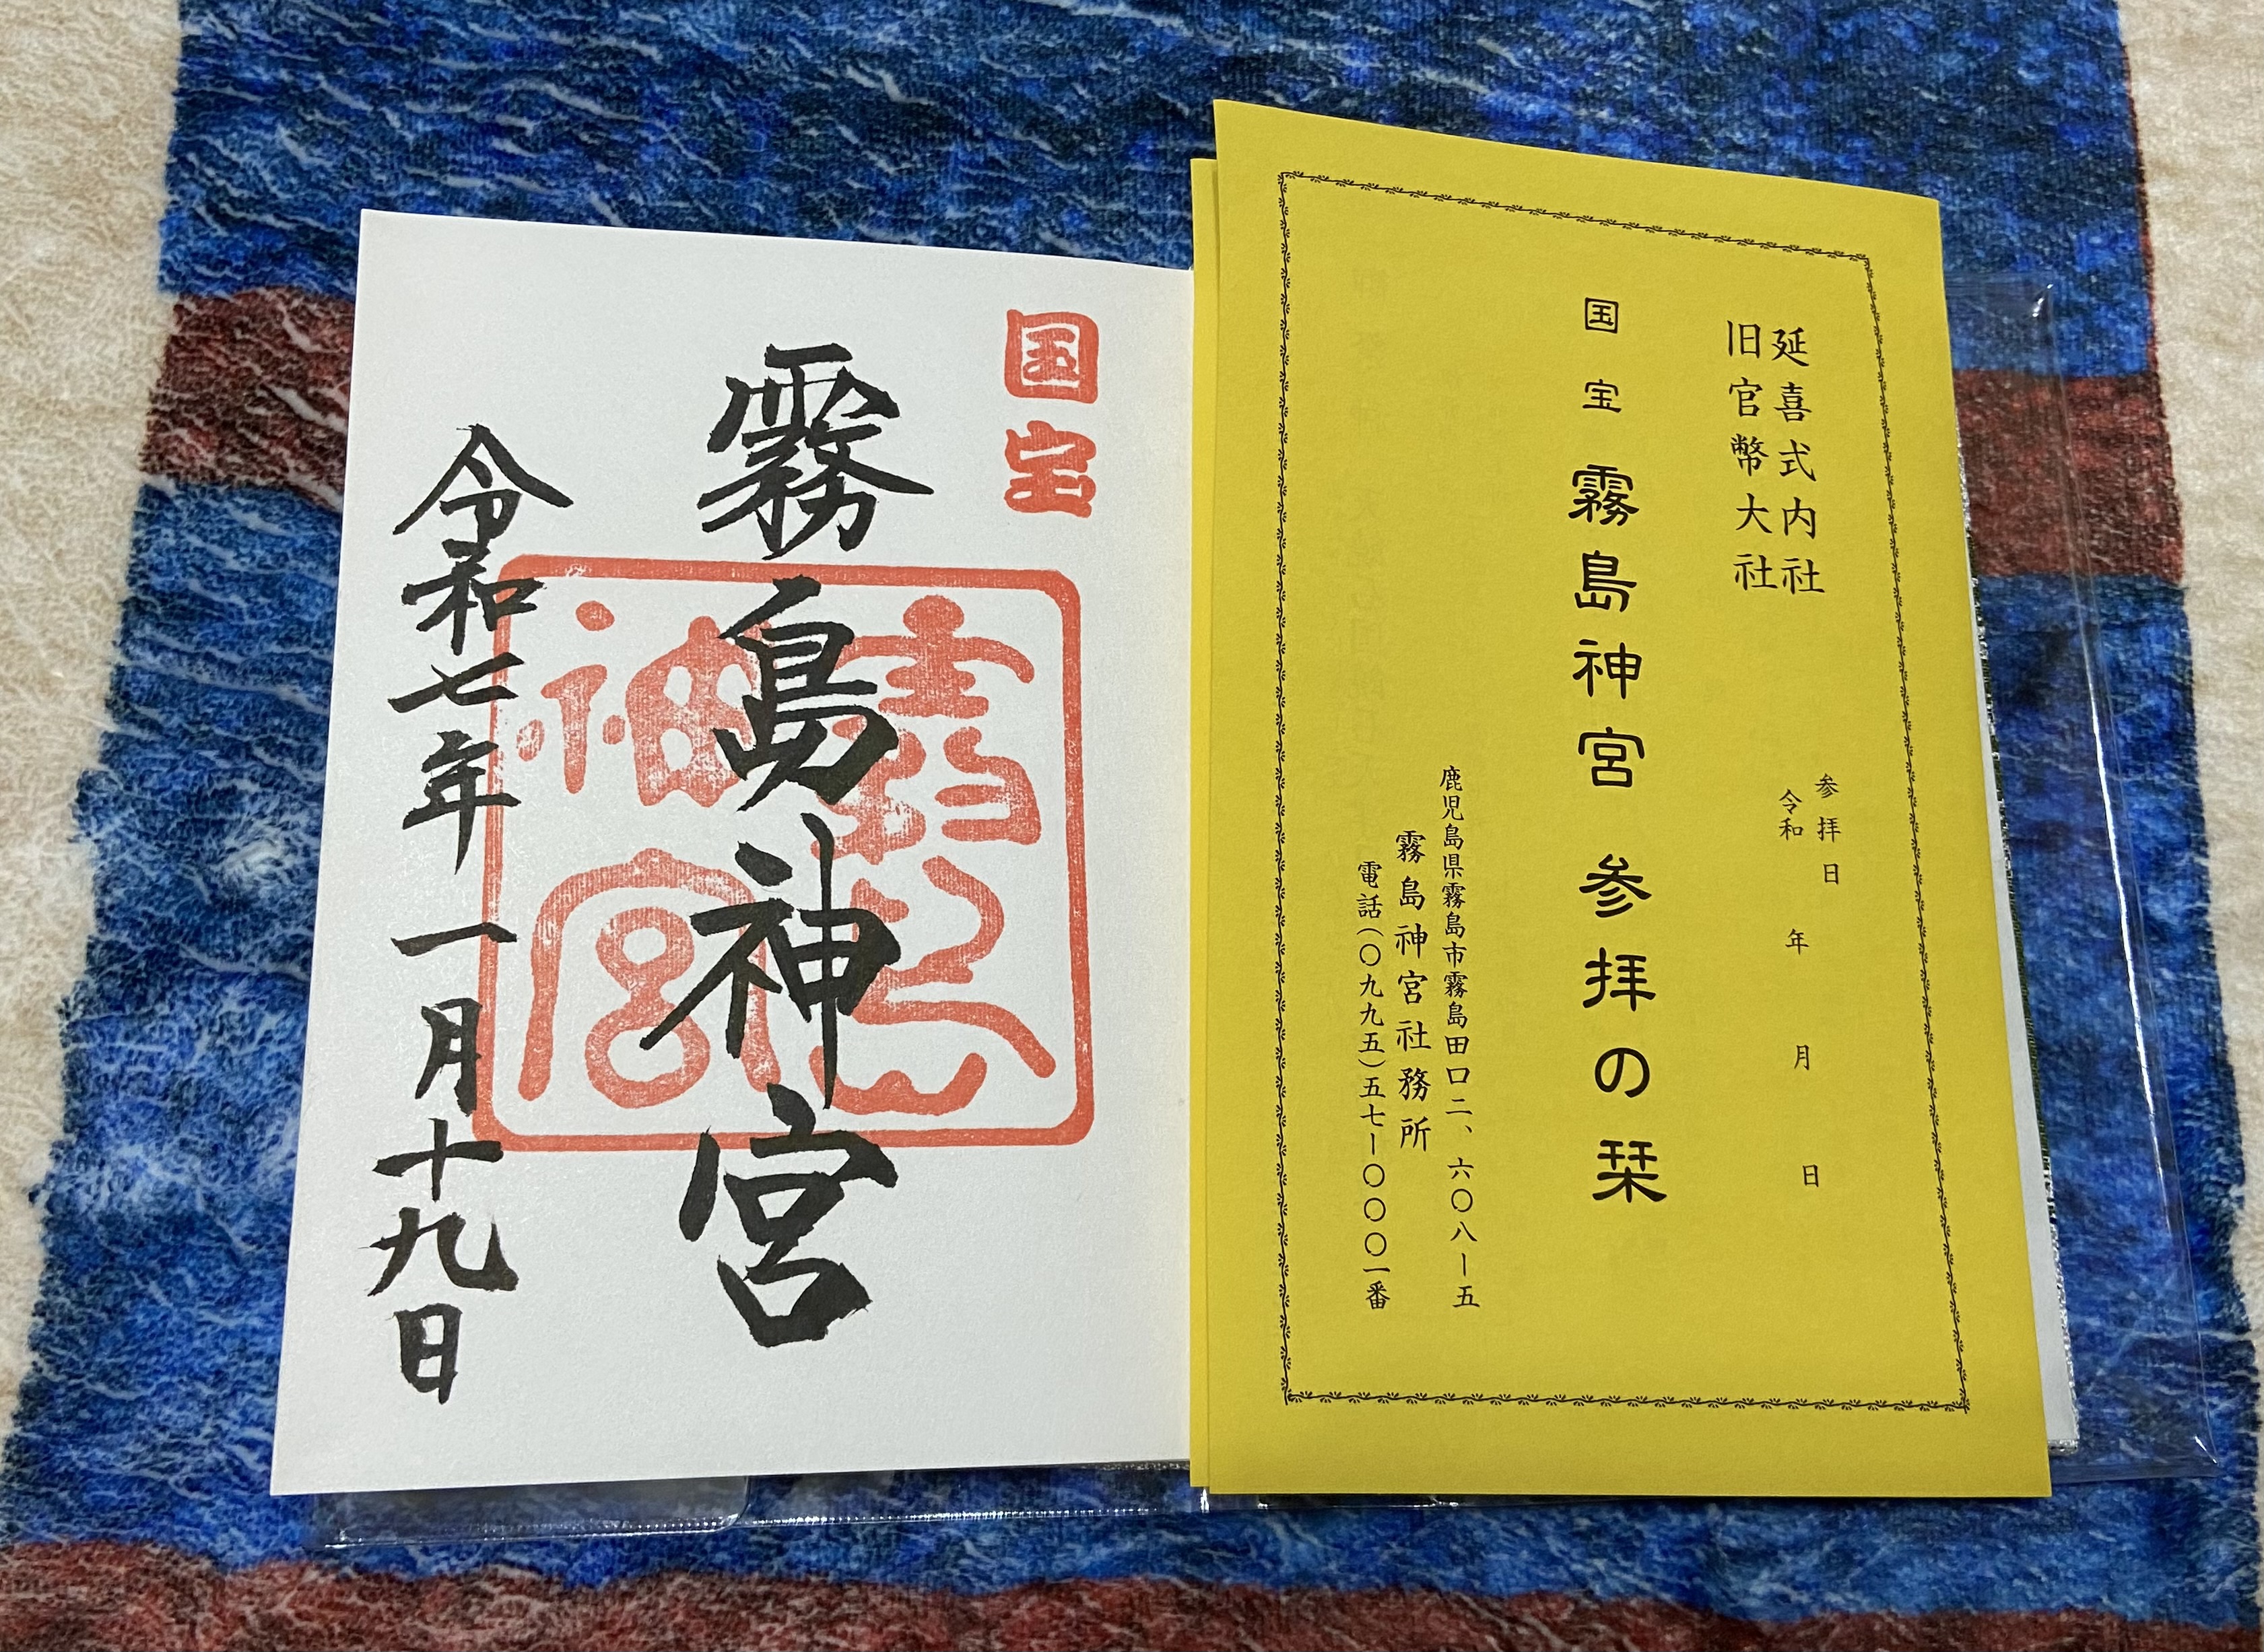 国宝
霧島神宮
霧島神宮
令和七年一月十九日
延喜式内社
旧官幣大社
参拝日
令和 年 月 日
国宝 霧島神宮 参拝の栞
鹿児島県霧島市霧島田口二、六〇八ー五
霧島神宮社務所
電話(〇九九五)五七ー〇〇〇一番